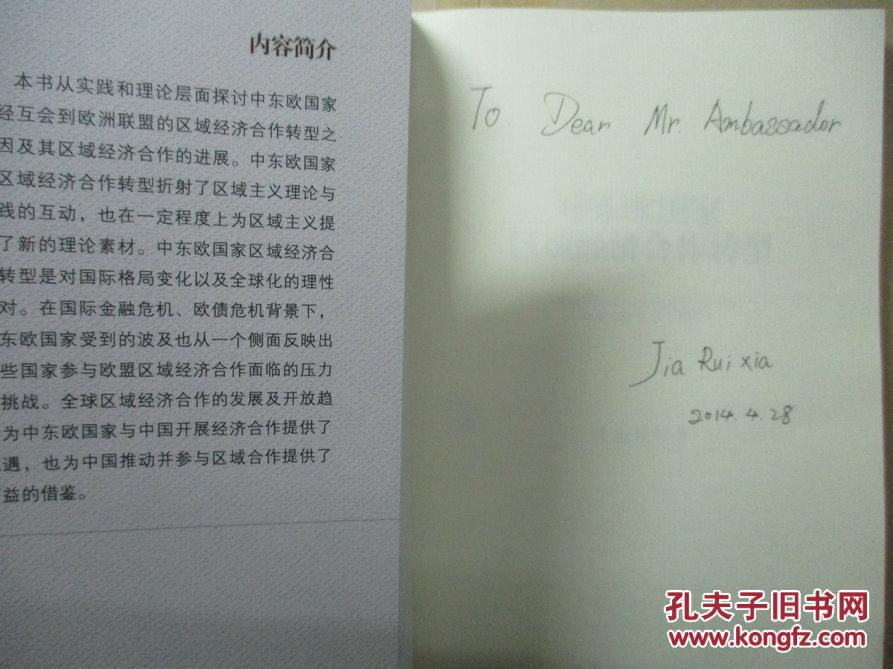 内容简介
本书从实践和理论层面探讨中东欧国家
经互会到欧洲联盟的区域经济合作转型之
因及其区域经济合作的进展。中东欧国家
区域经济合作转型折射了区域主义理论与
践的互动，也在一定程度上为区域主义提
了新的理论素材。中东欧国家区域经济合
转型是对国际格局变化以及全球化的理性
对。在国际金融危机、欧债危机背景下，
东欧国家受到的波及也从一个侧面反映出
些国家参与欧盟区域经济合作面临的压力
挑战。全球区域经济合作的发展及开放趋
为中东欧国家与中国开展经济合作提供了
遇，也为中国推动并参与区域合作提供了
益的借鉴。
To Dear Mr. Ambassador
Jia Rui xia
2014.4.28
孔夫子旧书网
www.kongfz.com